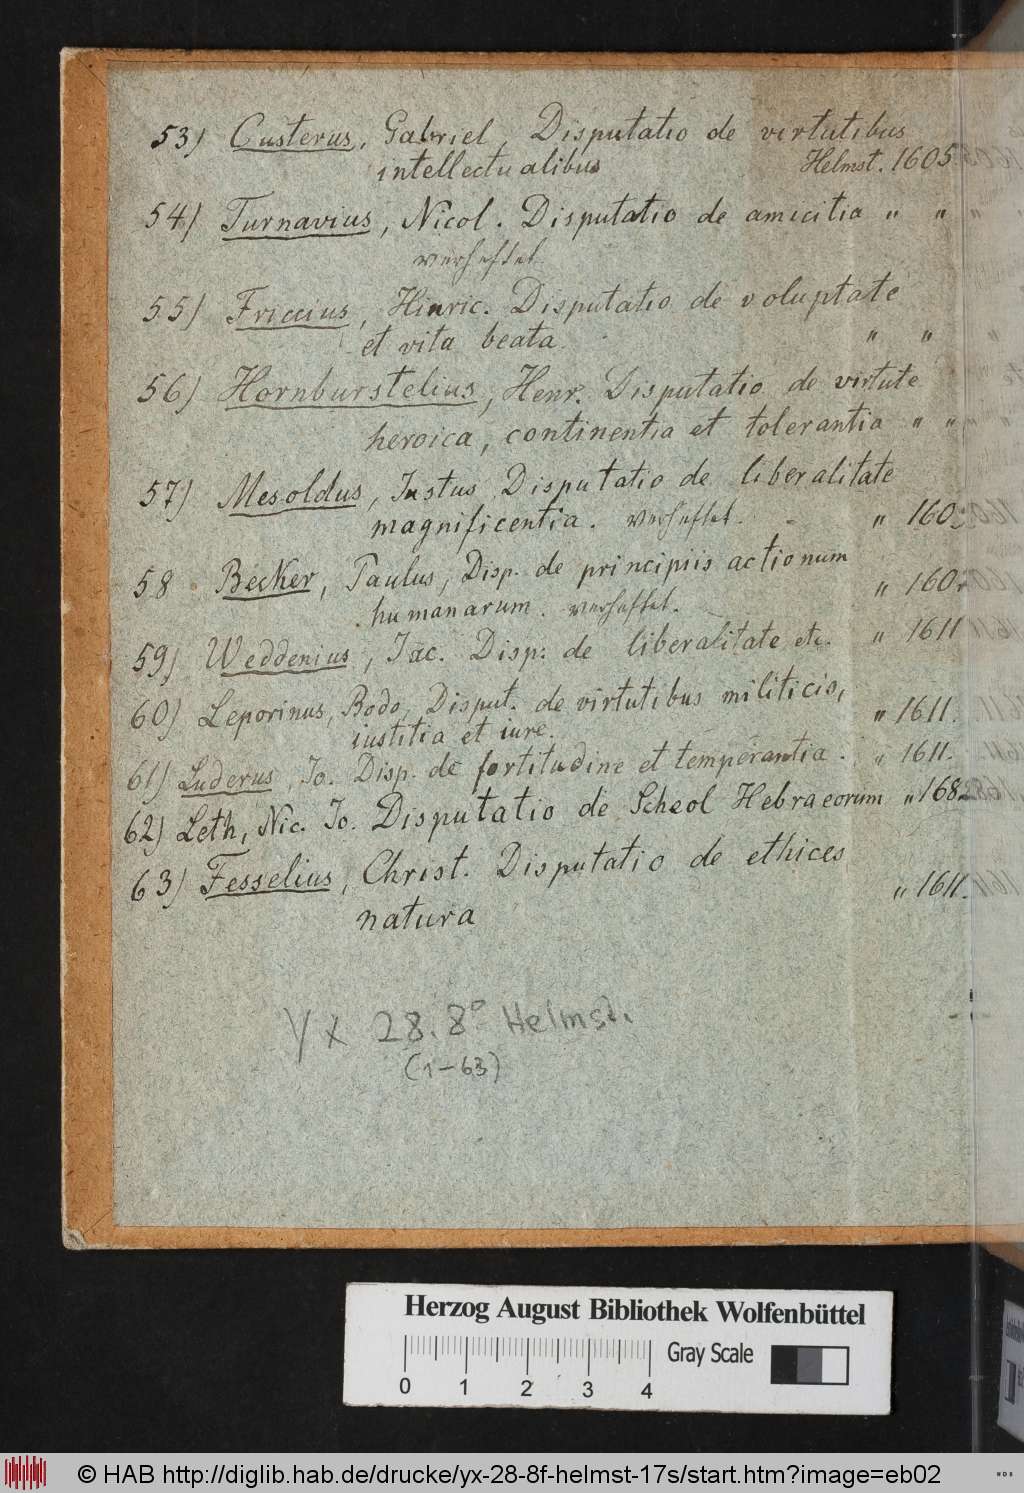 53) Custerus, Gabriel, Disputatio de virtutibus
intellectualibus Helmst. 1605
54) Turnavius, Nicol. Disputatio de amicitia " " " "
verheftet
55) Friccius, Hinric. Disputatio de voluptate
et vita beata. " " "
56) Hornburstelius, Henr. Disputatio de virtute
heroica, continentia et tolerantia " " " "
57) Mesoldus, Justus, Disputatio de liberalitate
magnificentia. verheftet. " 160
58 Becker, Paulus, Disp. de principiis actionum
humanarum. verheftet. " 160
59) Weddenius, Jac. Disp: de liberalitate etc. " 1611
60) Leporinus, Bodo, Disput. de virtutibus militicis,
iustitia et iure. " 1611.
61) Luderus, Jo. Disp. de fortitudine et temperantia. " 1611.
62) Leth, Nic. Jo. Disputatio de Scheol Hebraeorum " 1682
63) Fesselius, Christ. Disputatio de ethices
natura " 1611.
YX 28.8° Helmst.
(1-63)
Herzog August Bibliothek Wolfenbüttel
Gray Scale
0 1 2 3 4
© HAB http://diglib.hab.de/drucke/yx-28-8f-helmst-17s/start.htm?image=eb02